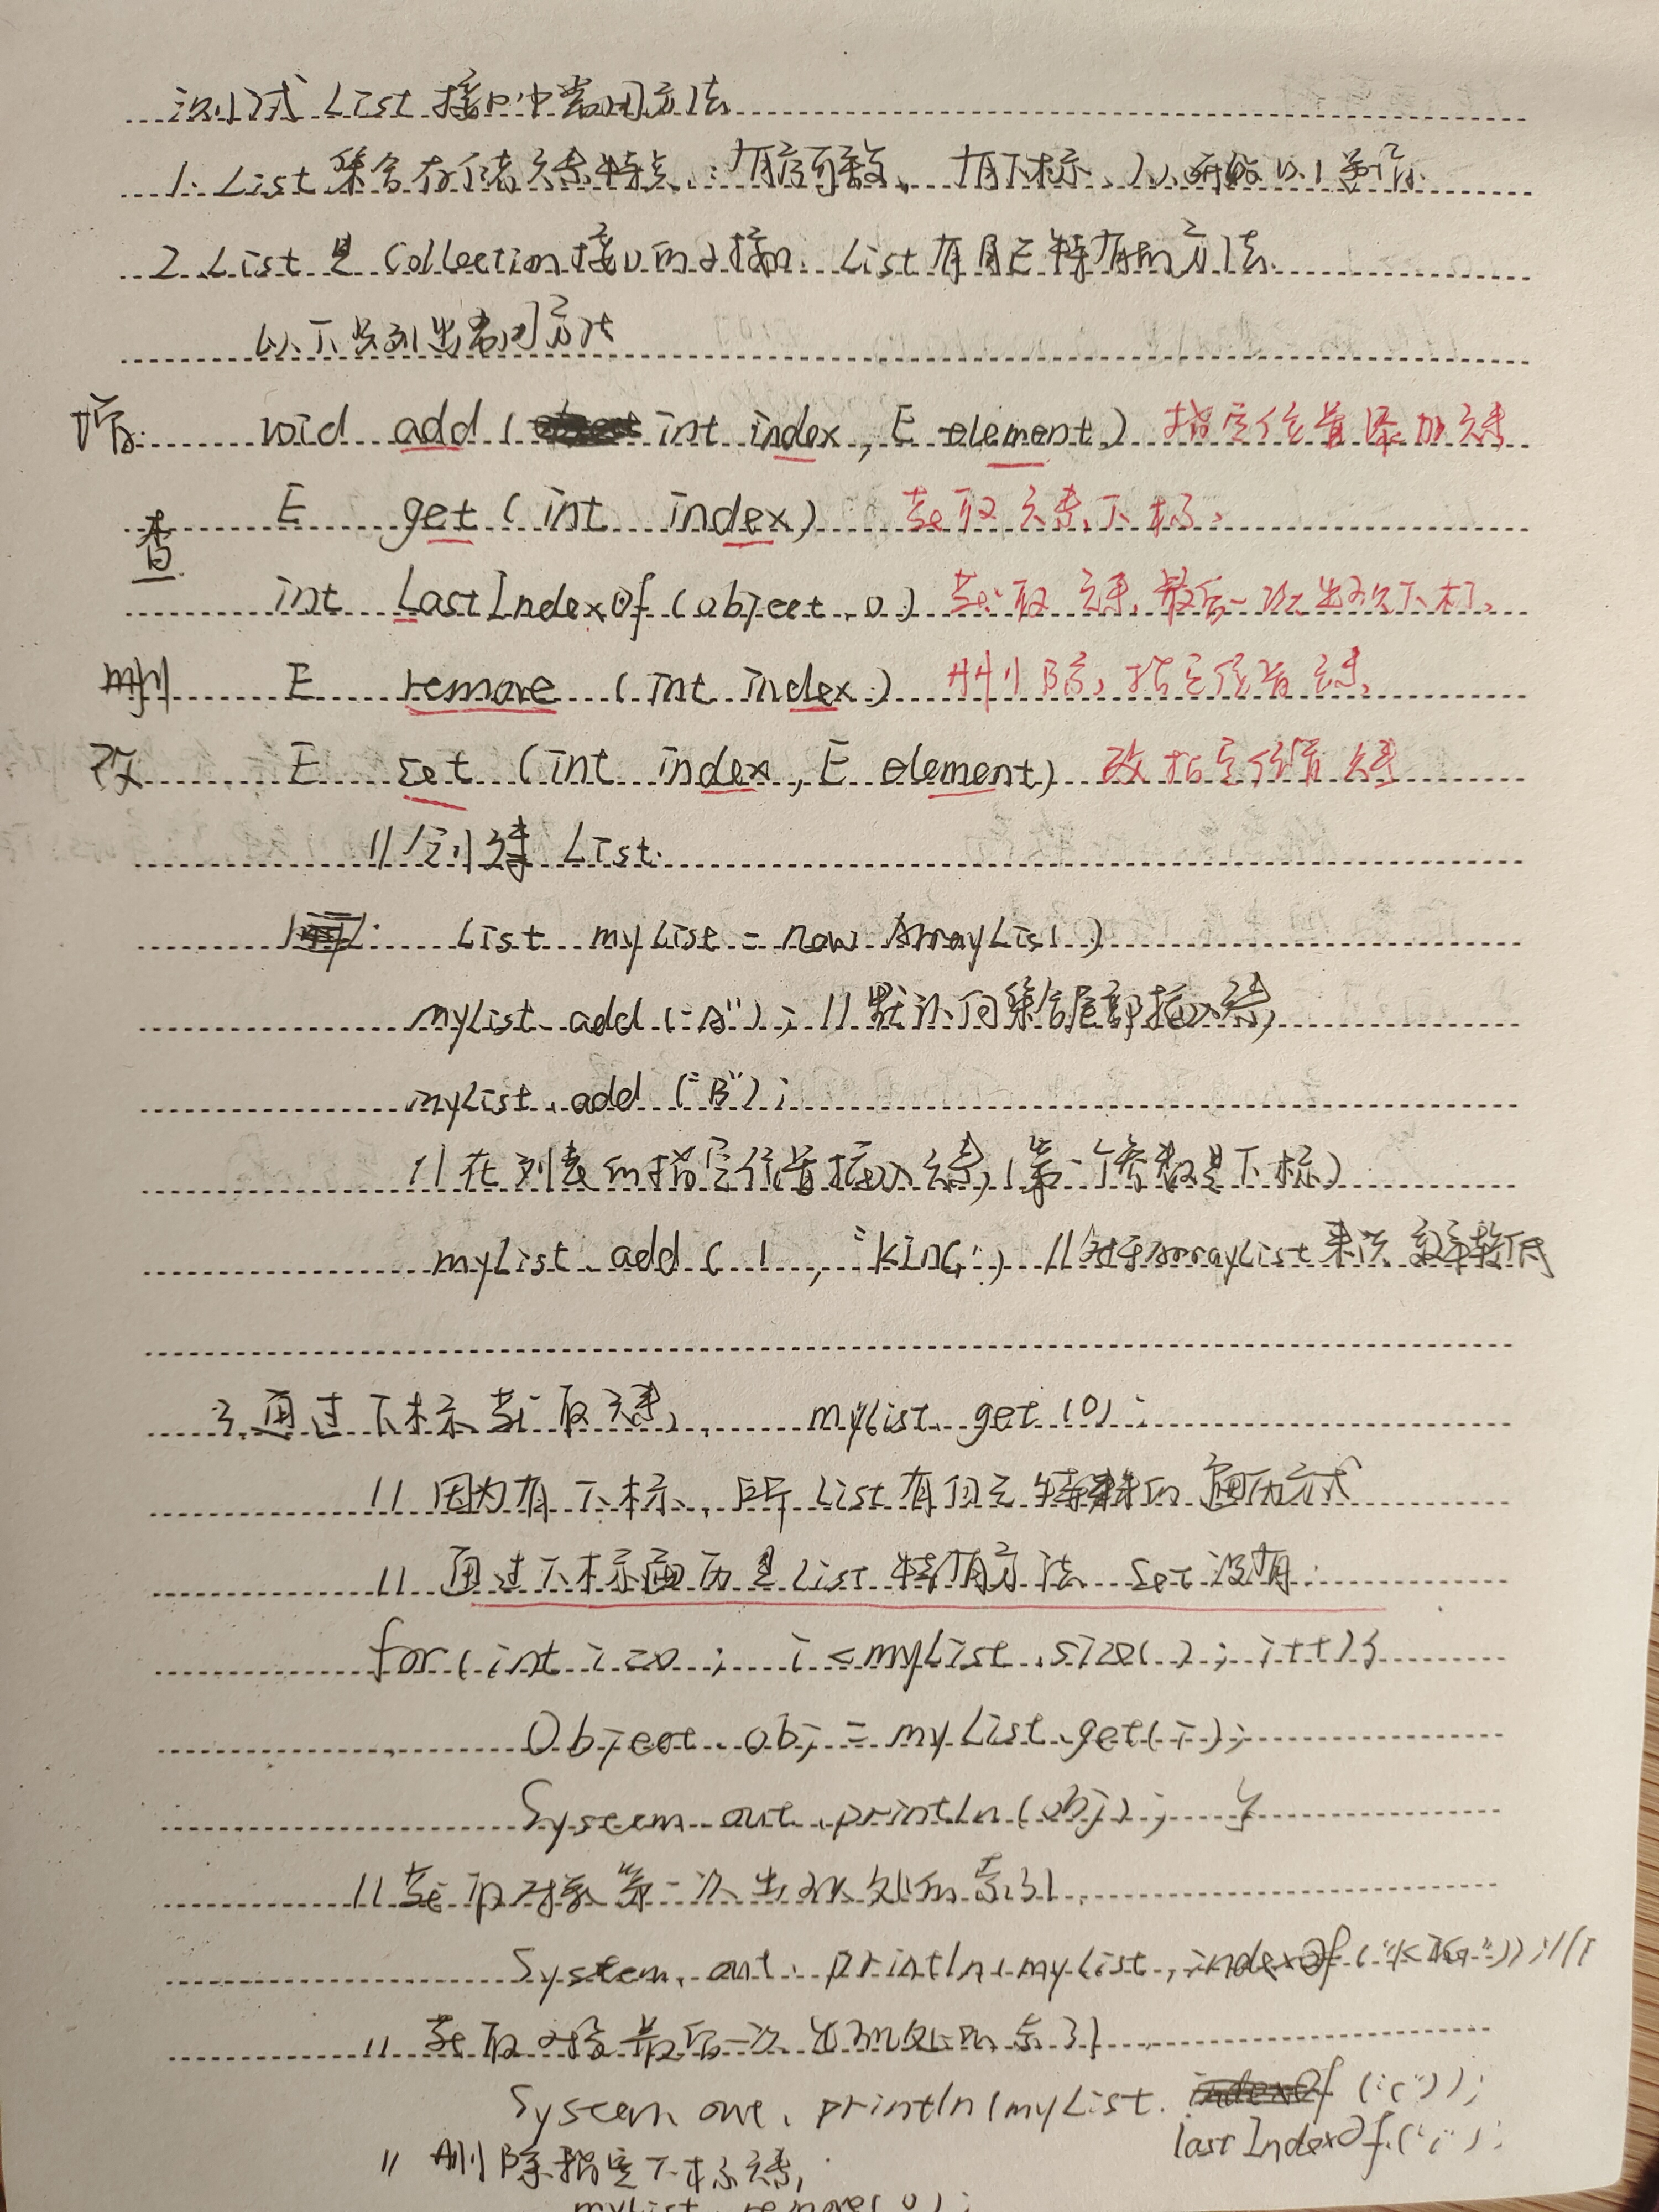 测试List接口中常用方法
1. List集合存储元素特点:有序可重复、有下标、从0开始以1递增.
2. List是Collection接口的子接口. List有自己特有的方法.
以下只列出常用方法
增: void add(int index, E element) 指定位置添加元素
E get(int index) 获取元素,下标.
查
int LastIndexOf(object o) 获取元素,最后一次出现次下标,
删 E remove (int index) 删除,指定位置元素,
改 E set (int index, E element) 改指定位置元素
//创建List.
List myList = new ArrayList()
myList.add("A"); //默认向集合尾部插入元素,
myList.add("B");
//在列表的指定位置插入元素,(第一个参数是下标)
myList.add(1, "king") //对于ArrayList来说效率较低
3.通过下标获取元素, myList.get(0);
//因为有下标,所List有自己特殊的遍历方式
//通过下标遍历是List特有方法 Set没有.
for(int i=0; i<myList.size(); i++){
Object obj = myList.get(i);
System.out.println(obj); }
//获取对象第一次出现处的索引.
System.out.println(myList.indexOf("King")); //1
//获取对象最后一次出现处的索引
System.out.println(myList. indexOf ("c"));
lastIndexOf("c");
//删除指定下标元素,
myList.remove(0);